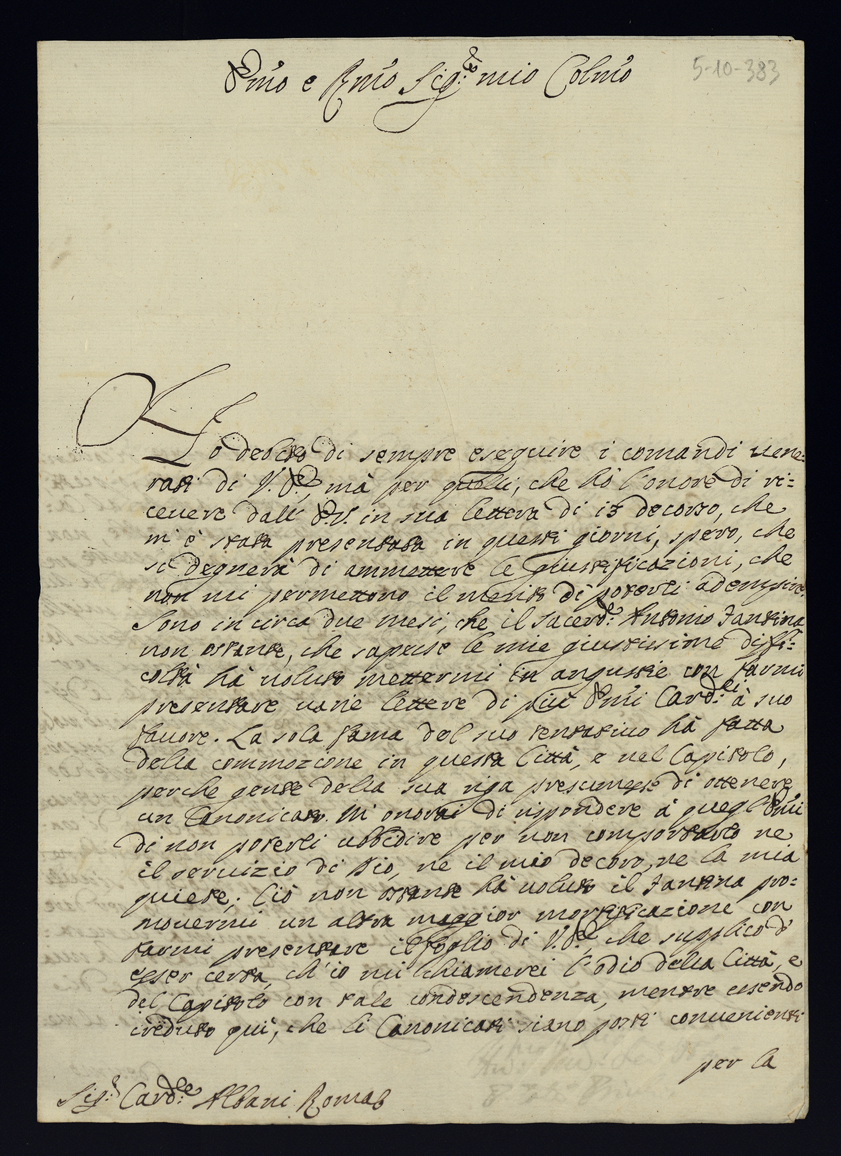 Emo e Rmo Sig.re mio Colmo
5-10-383
Ho debito di sempre eseguire i comandi vene=
rati di V. E.za, mà per quelli, che hò l'onore di ri=
cevere dall' E.V. in sua lettera di 13 decorso, che
m'è stata presentata in questi giorni, spero, che
si degnerà di ammettere le giustificazioni, che
non mi permettono il merito di poterli adempire.
Sono in circa due mesi, che il sacerd.e Antonio Fantina
non ostante, che sapesse le mie giustissime diffi=
coltà hà voluto mettermi in angustie con farmi
presentare varie lettere di più Emi Card.li à suo
favore. La sola fama del suo tentativo hà fatta
della commozione in questa Città, e nel Capitolo,
perche gente della sua riga presumesse di ottenere
un Canonicato. Mi onorai di rispondere à quegl'Emi
di non poterli ubbidire per non comportarlo ne
il servizio di Dio, ne il mio decoro, ne la mia
quiete; Ciò non ostante hà voluto il Fantina pro=
movermi un altra maggior mortificazione con
farmi presentare il foglio di V. E.za che supplico d'
esser certa, ch'io mi chiamerei l'odio della Città, e
del Capitolo con tale condescendenza, mentre essendo
creduto quì, che li Canonicati siano posti convenienti
per la
Sig.r Card.le Albani Roma